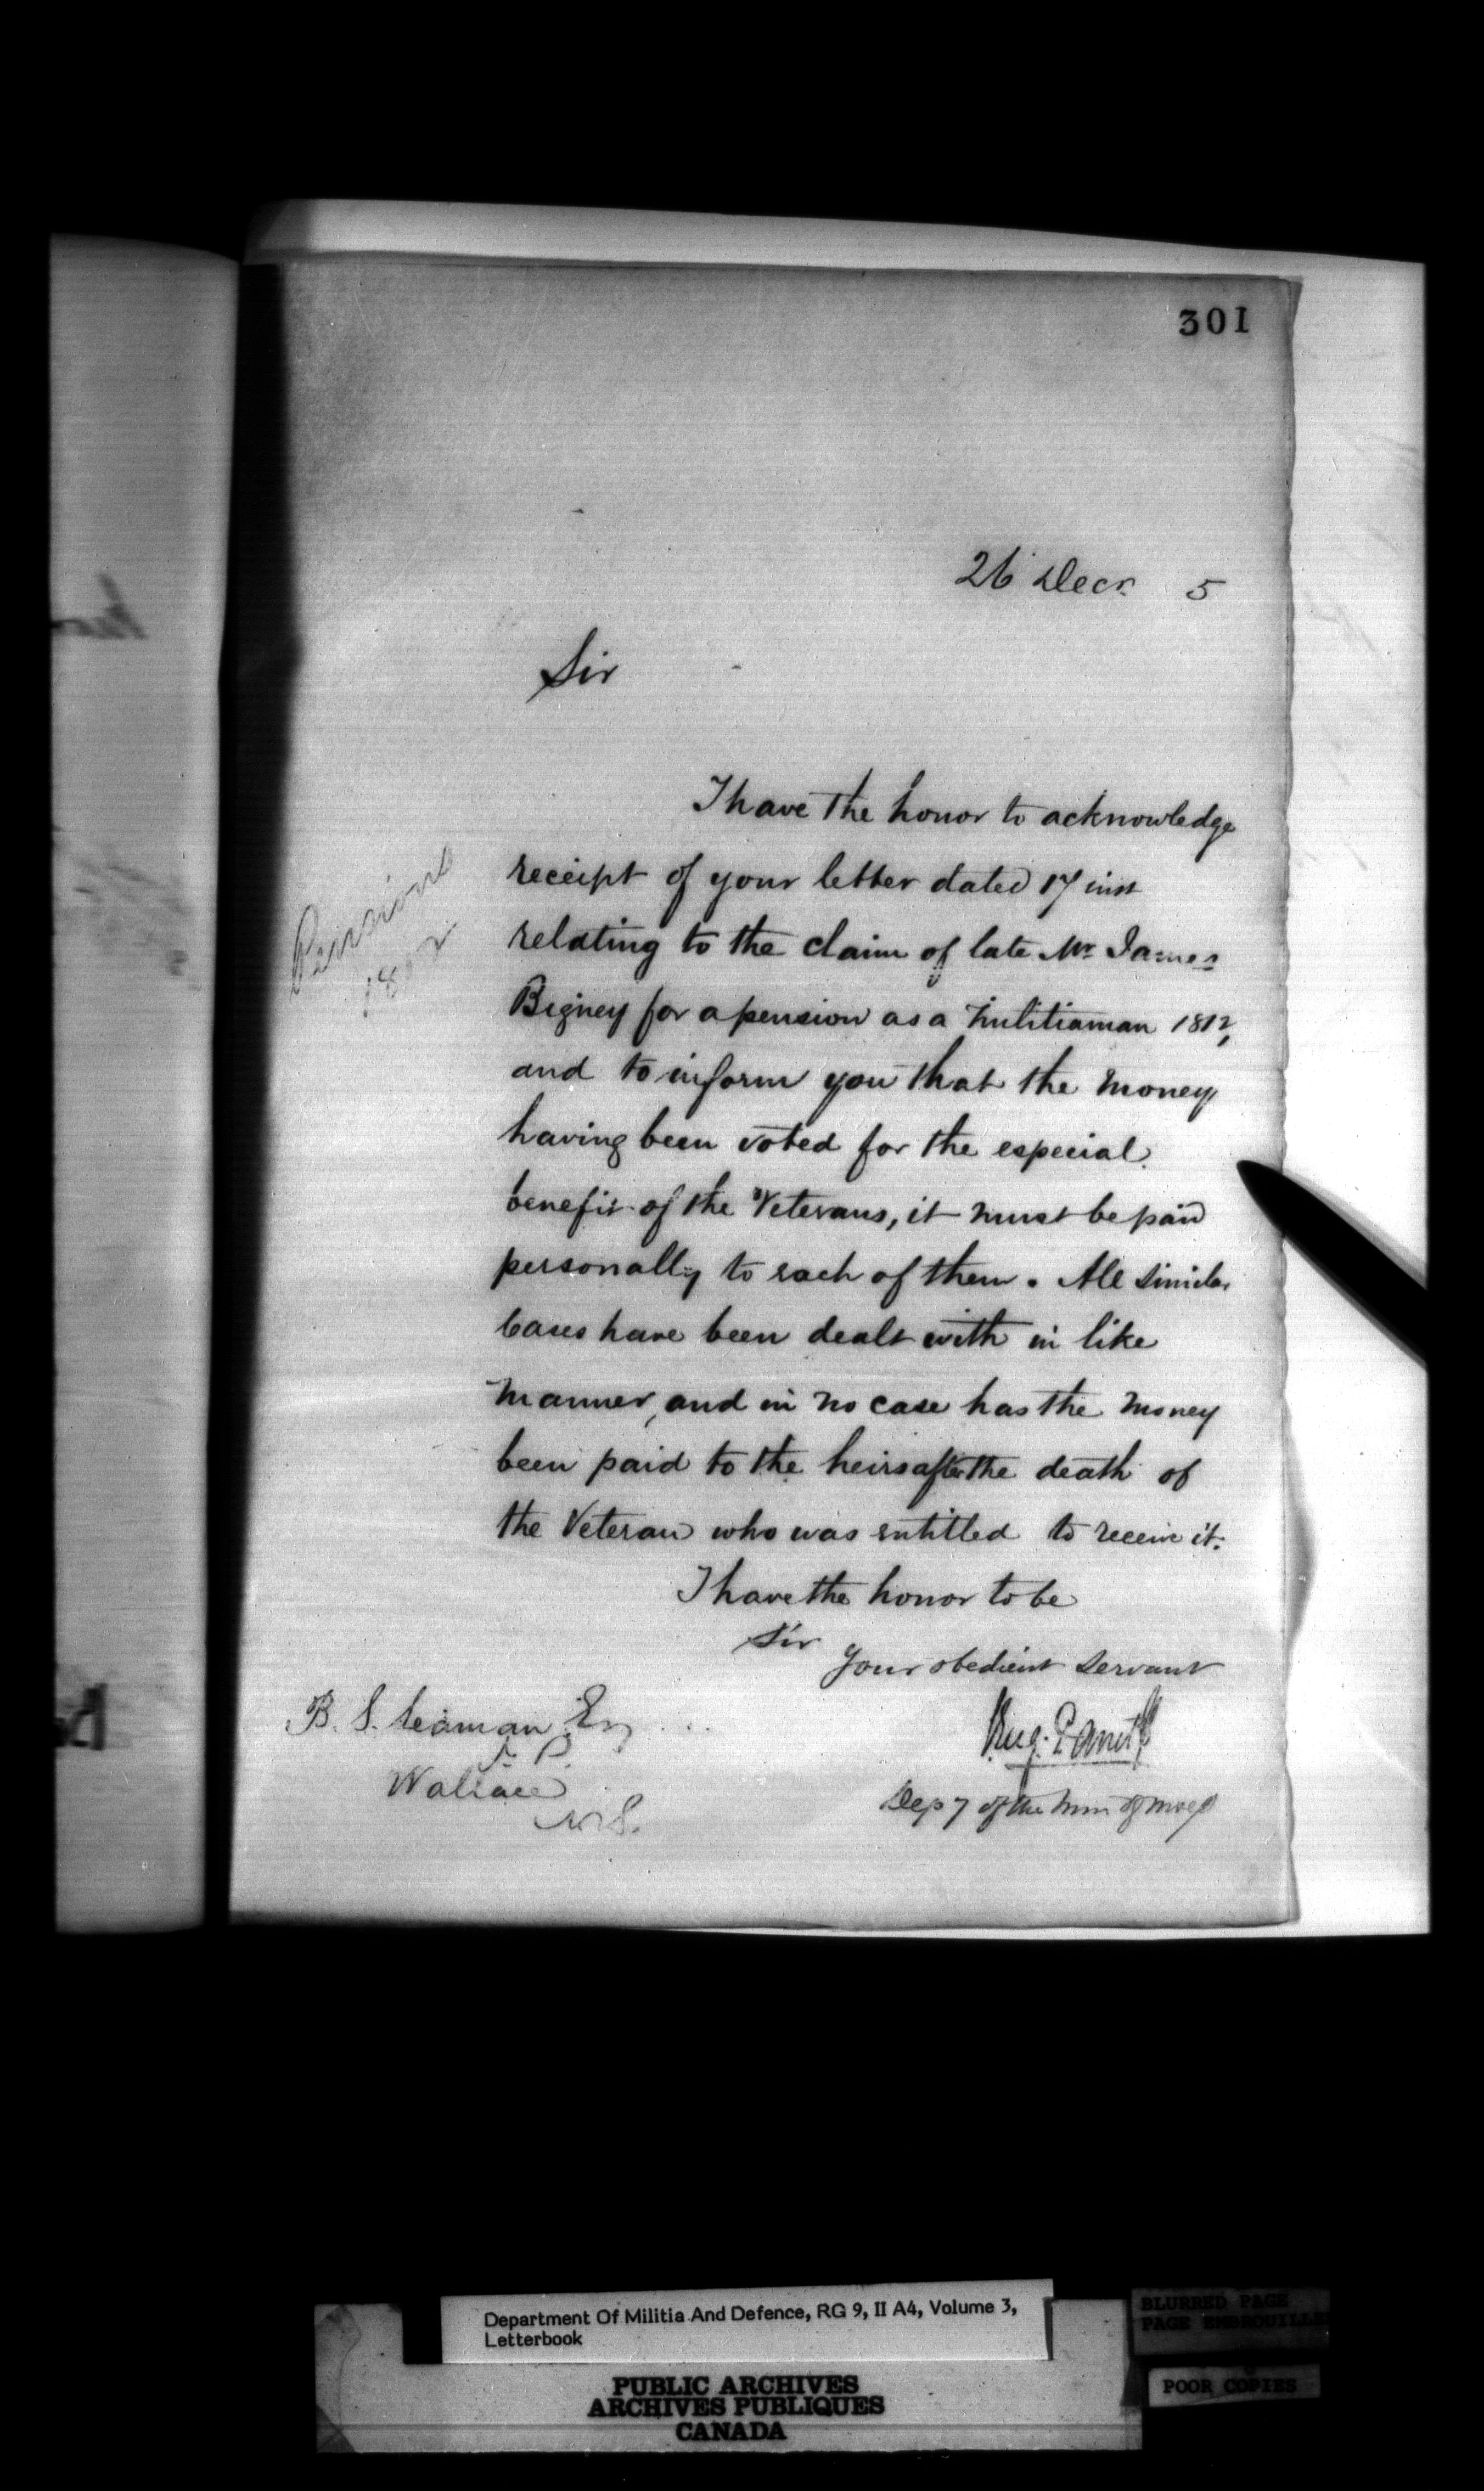 301
26 Decr. 5
Sir
I have the honor to acknowledge
receipt of your letter dated 17 inst
relating to the claim of late Mr James
Bigney for a pension as a Militiaman 1812,
and to inform you that the money
having been voted for the especial
benefit of the Veterans, it must be paid
personally to each of them. All similar
cases have been dealt with in like
manner, and in no case has the money
been paid to the heirs after the death of
the Veteran who was entitled to receive it.
I have the honor to be
Sir
Your obedient servant
Pensions
1812
B. S. Seaman Esq
J. P.
Wallace
N.S.
Eug. Panet
Depy of the Min of M & D
Department Of Militia And Defence, RG 9, II A4, Volume 3,
Letterbook
PUBLIC ARCHIVES
ARCHIVES PUBLIQUES
CANADA
BLURRED PAGE
PAGE EMBROUILLE
POOR COPIES